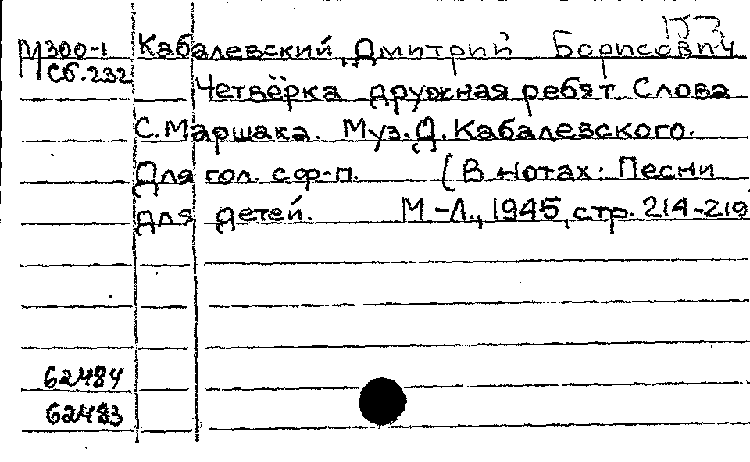 М300-1 Кабалевский, Дмитрий Борисович
Сб.232
Четвёрка дружная ребят. Слова
С. Маршака. Муз. Д. Кабалевского.
Для гол. с ф-п. (В нотах: Песни
для детей. М-Л., 1945, стр. 214-219
62484
62483